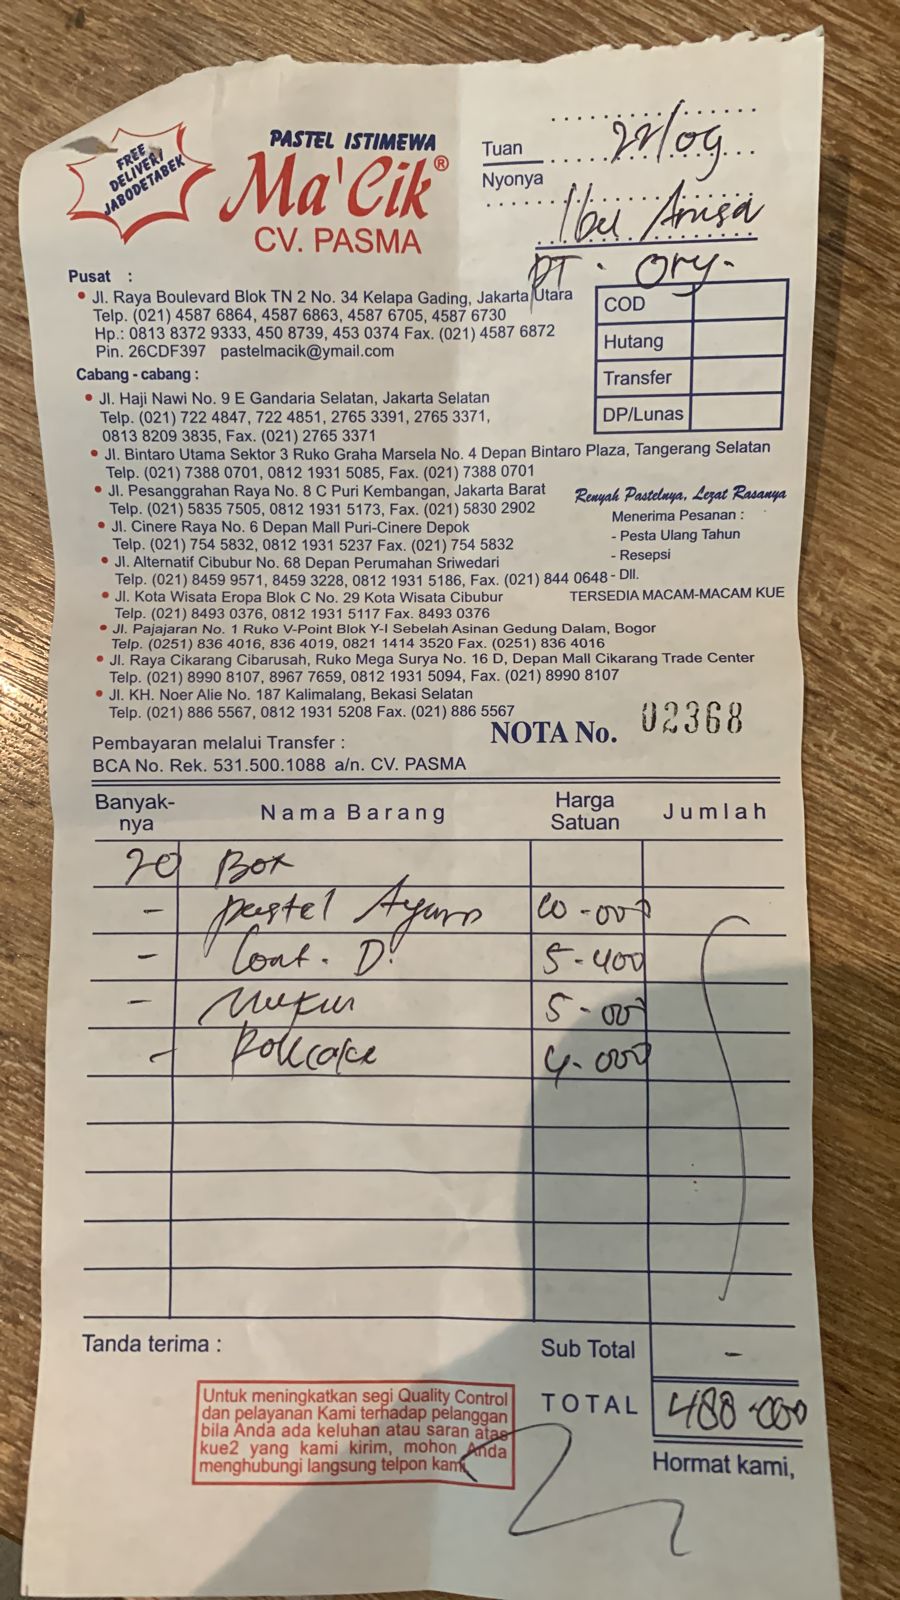 FREE
DELIVERY
JABODETABEK
PASTEL ISTIMEWA
Ma'Cik®
CV. PASMA
Tuan 22/09
Nyonya
Ibu Anisa
PT. Ory.
Pusat :
• Jl. Raya Boulevard Blok TN 2 No. 34 Kelapa Gading, Jakarta Utara
Telp. (021) 4587 6864, 4587 6863, 4587 6705, 4587 6730
Hp.: 0813 8372 9333, 450 8739, 453 0374 Fax. (021) 4587 6872
Pin. 26CDF397 pastelmacik@ymail.com
COD
Hutang
Transfer
DP/Lunas
Cabang - cabang :
• Jl. Haji Nawi No. 9 E Gandaria Selatan, Jakarta Selatan
Telp. (021) 722 4847, 722 4851, 2765 3391, 2765 3371,
0813 8209 3835, Fax. (021) 2765 3371
• Jl. Bintaro Utama Sektor 3 Ruko Graha Marsela No. 4 Depan Bintaro Plaza, Tangerang Selatan
Telp. (021) 7388 0701, 0812 1931 5085, Fax. (021) 7388 0701
• Jl. Pesanggrahan Raya No. 8 C Puri Kembangan, Jakarta Barat
Telp. (021) 5835 7505, 0812 1931 5173, Fax. (021) 5830 2902
• Jl. Cinere Raya No. 6 Depan Mall Puri-Cinere Depok
Telp. (021) 754 5832, 0812 1931 5237 Fax. (021) 754 5832
• Jl. Alternatif Cibubur No. 68 Depan Perumahan Sriwedari
Telp. (021) 8459 9571, 8459 3228, 0812 1931 5186, Fax. (021) 844 0648
• Jl. Kota Wisata Eropa Blok C No. 29 Kota Wisata Cibubur
Telp. (021) 8493 0376, 0812 1931 5117 Fax. 8493 0376
• Jl. Pajajaran No. 1 Ruko V-Point Blok Y-I Sebelah Asinan Gedung Dalam, Bogor
Telp. (0251) 836 4016, 836 4019, 0821 1414 3520 Fax. (0251) 836 4016
• Jl. Raya Cikarang Cibarusah, Ruko Mega Surya No. 16 D, Depan Mall Cikarang Trade Center
Telp. (021) 8990 8107, 8967 7659, 0812 1931 5094, Fax. (021) 8990 8107
• Jl. KH. Noer Alie No. 187 Kalimalang, Bekasi Selatan
Telp. (021) 886 5567, 0812 1931 5208 Fax. (021) 886 5567
Renyah Pastelnya, Lezat Rasanya
Menerima Pesanan :
- Pesta Ulang Tahun
- Resepsi
- Dll.
TERSEDIA MACAM-MACAM KUE
NOTA No. 02368
Pembayaran melalui Transfer :
BCA No. Rek. 531.500.1088 a/n. CV. PASMA
Banyak-nya Nama Barang Harga Satuan Jumlah
20 Box
- pastel Ayam 10-000
- Lont. D. 5-400
- 5-000
- Rollcake 4-000
Tanda terima :
Sub Total -
TOTAL 488-000
Hormat kami,
Untuk meningkatkan segi Quality Control
dan pelayanan Kami terhadap pelanggan
bila Anda ada keluhan atau saran atas
kue2 yang kami kirim, mohon Anda
menghubungi langsung telpon kami